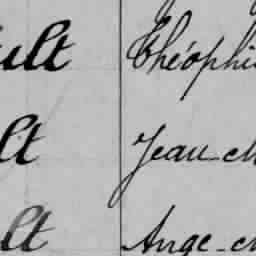 ult Théophi
lt Jean-M
lt Ange-M